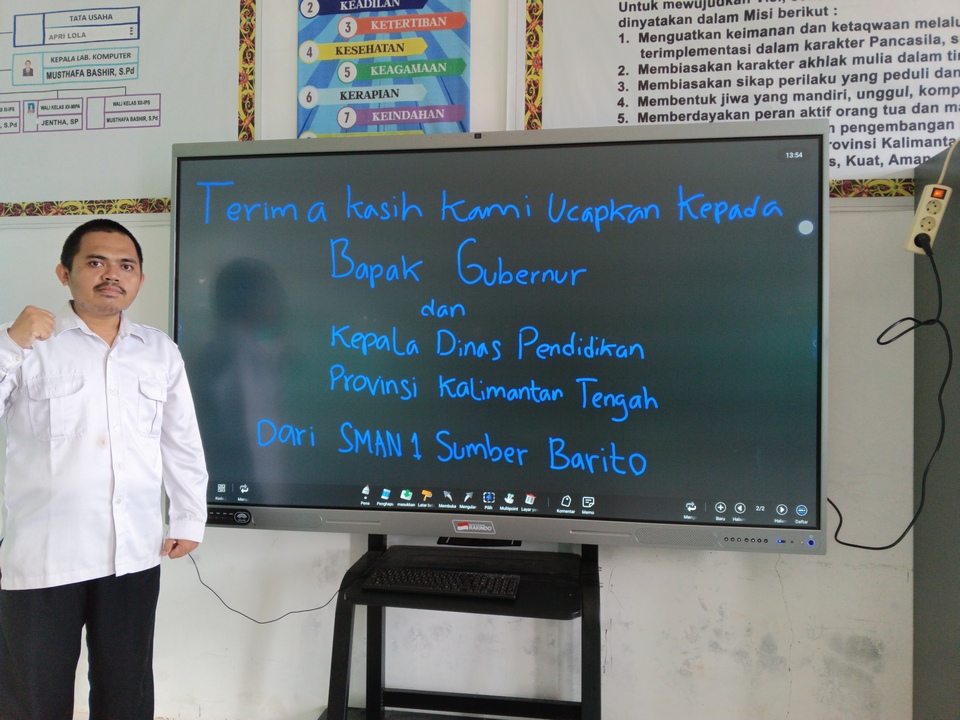 TATA USAHA
APRI LOLA
KEPALA LAB. KOMPUTER
MUSTHAFA BASHIR, S.Pd
WALI KELAS XII-MIPA
JENTHA, SP
WALI KELAS XII-IPS
MUSTHAFA BASHIR, S.Pd
2 KEADILAN
3 KETERTIBAN
4 KESEHATAN
5 KEAGAMAAN
6 KERAPIAN
7 KEINDAHAN
Untuk mewujudkan
dinyatakan dalam Misi berikut :
1. Menguatkan keimanan dan ketaqwaan
terimplementasi dalam karakter Pancasila,
2. Membiasakan karakter akhlak mulia dalam
3. Membiasakan sikap perilaku yang peduli dan
4. Membentuk jiwa yang mandiri, unggul,
5. Memberdayakan peran aktif orang tua dan
pengembangan
Kuat,
13:54
Terima kasih kami Ucapkan Kepada
Bapak Gubernur
dan
Kepala Dinas Pendidikan
Provinsi Kalimantan Tengah
Dari SMAN 1 Sumber Barito
Pena Penghapus masukkan Membuka Mengular Pilih Multipoint Komentar Memo
Baru 2/2 Daftar